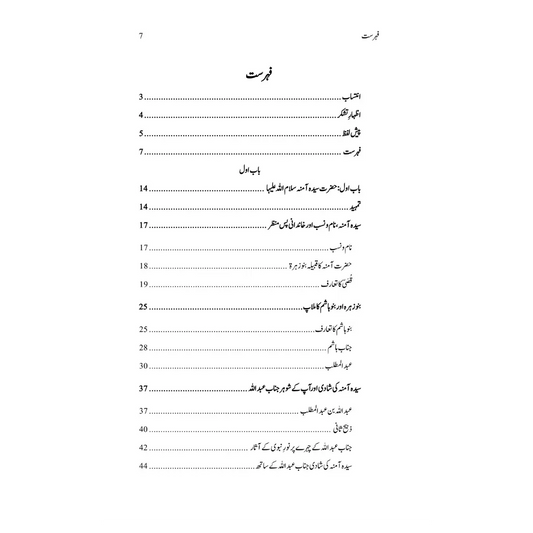 فہرست 7
فہرست
انتساب ........ 3
اظہارِ تشکر ........ 4
پیش لفظ ........ 5
فہرست ........ 7
باب اول
باب اول: حضرت سیدہ آمنہ سلام اللہ علیہا ........ 14
تمہید ........ 14
سیدہ آمنہ، نام و نسب اور خاندانی پس منظر ........ 17
نام و نسب ........ 17
حضرت آمنہ کا قبیلہ بنو زہرۃ ........ 18
قُصَیّ کا تعارف ........ 19
بنو زہرہ اور بنو ہاشم کا ملاپ ........ 25
بنو ہاشم کا تعارف ........ 25
جناب ہاشم ........ 28
عبد المطلب ........ 30
سیدہ آمنہ کی شادی اور آپ کے شوہر جناب عبد اللہ ........ 37
عبد اللہ بن عبد المطلب ........ 37
ذبیح ثانی ........ 40
جناب عبد اللہ کے چہرے پر نورِ نبوی کے آثار ........ 42
سیدہ آمنہ کی شادی جناب عبد اللہ کے ساتھ ........ 44